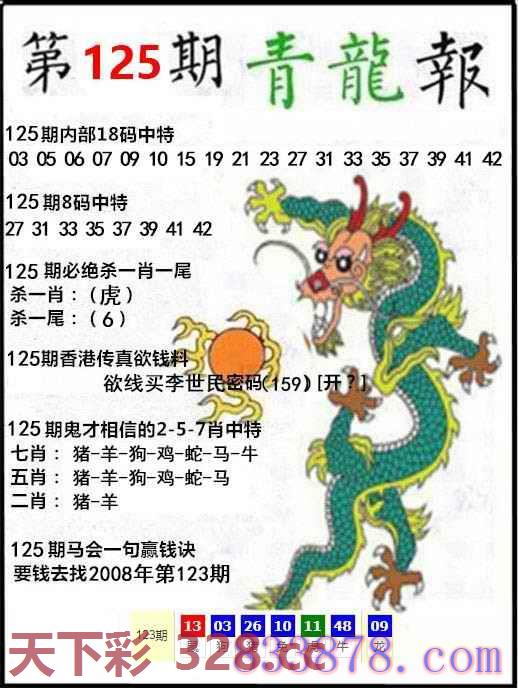 第125期青龍報
125期内部18码中特
03 05 06 07 09 10 15 19 21 23 27 31 33 35 37 39 41 42
125期8码中特
27 31 33 35 37 39 41 42
125期必绝杀一肖一尾
杀一肖：(虎)
杀一尾：(6)
125期香港传真欲钱料
欲线买李世民密码(159)[开?]
125期鬼才相信的2-5-7肖中特
七肖：猪-羊-狗-鸡-蛇-马-牛
五肖：猪-羊-狗-鸡-蛇-马
二肖：猪-羊
125期马会一句赢钱诀
要钱去找2008年第123期
123期 13 03 26 10 11 48 09
鼠 狗 猪 兔 虎 牛 龙
天下彩 328.cc
833878.com